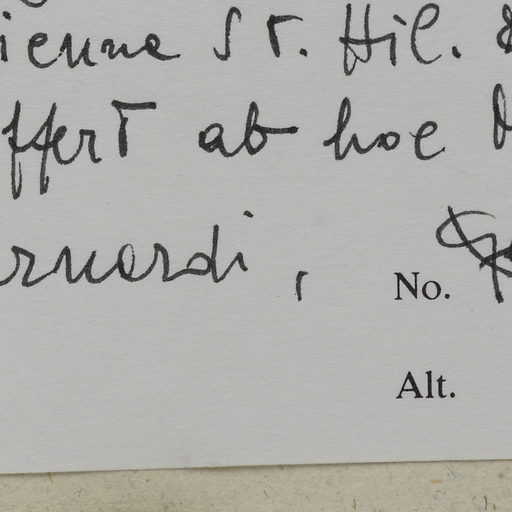 ienne St. Hil. &
ffert ab hoc
ernardi,
No.
Alt.